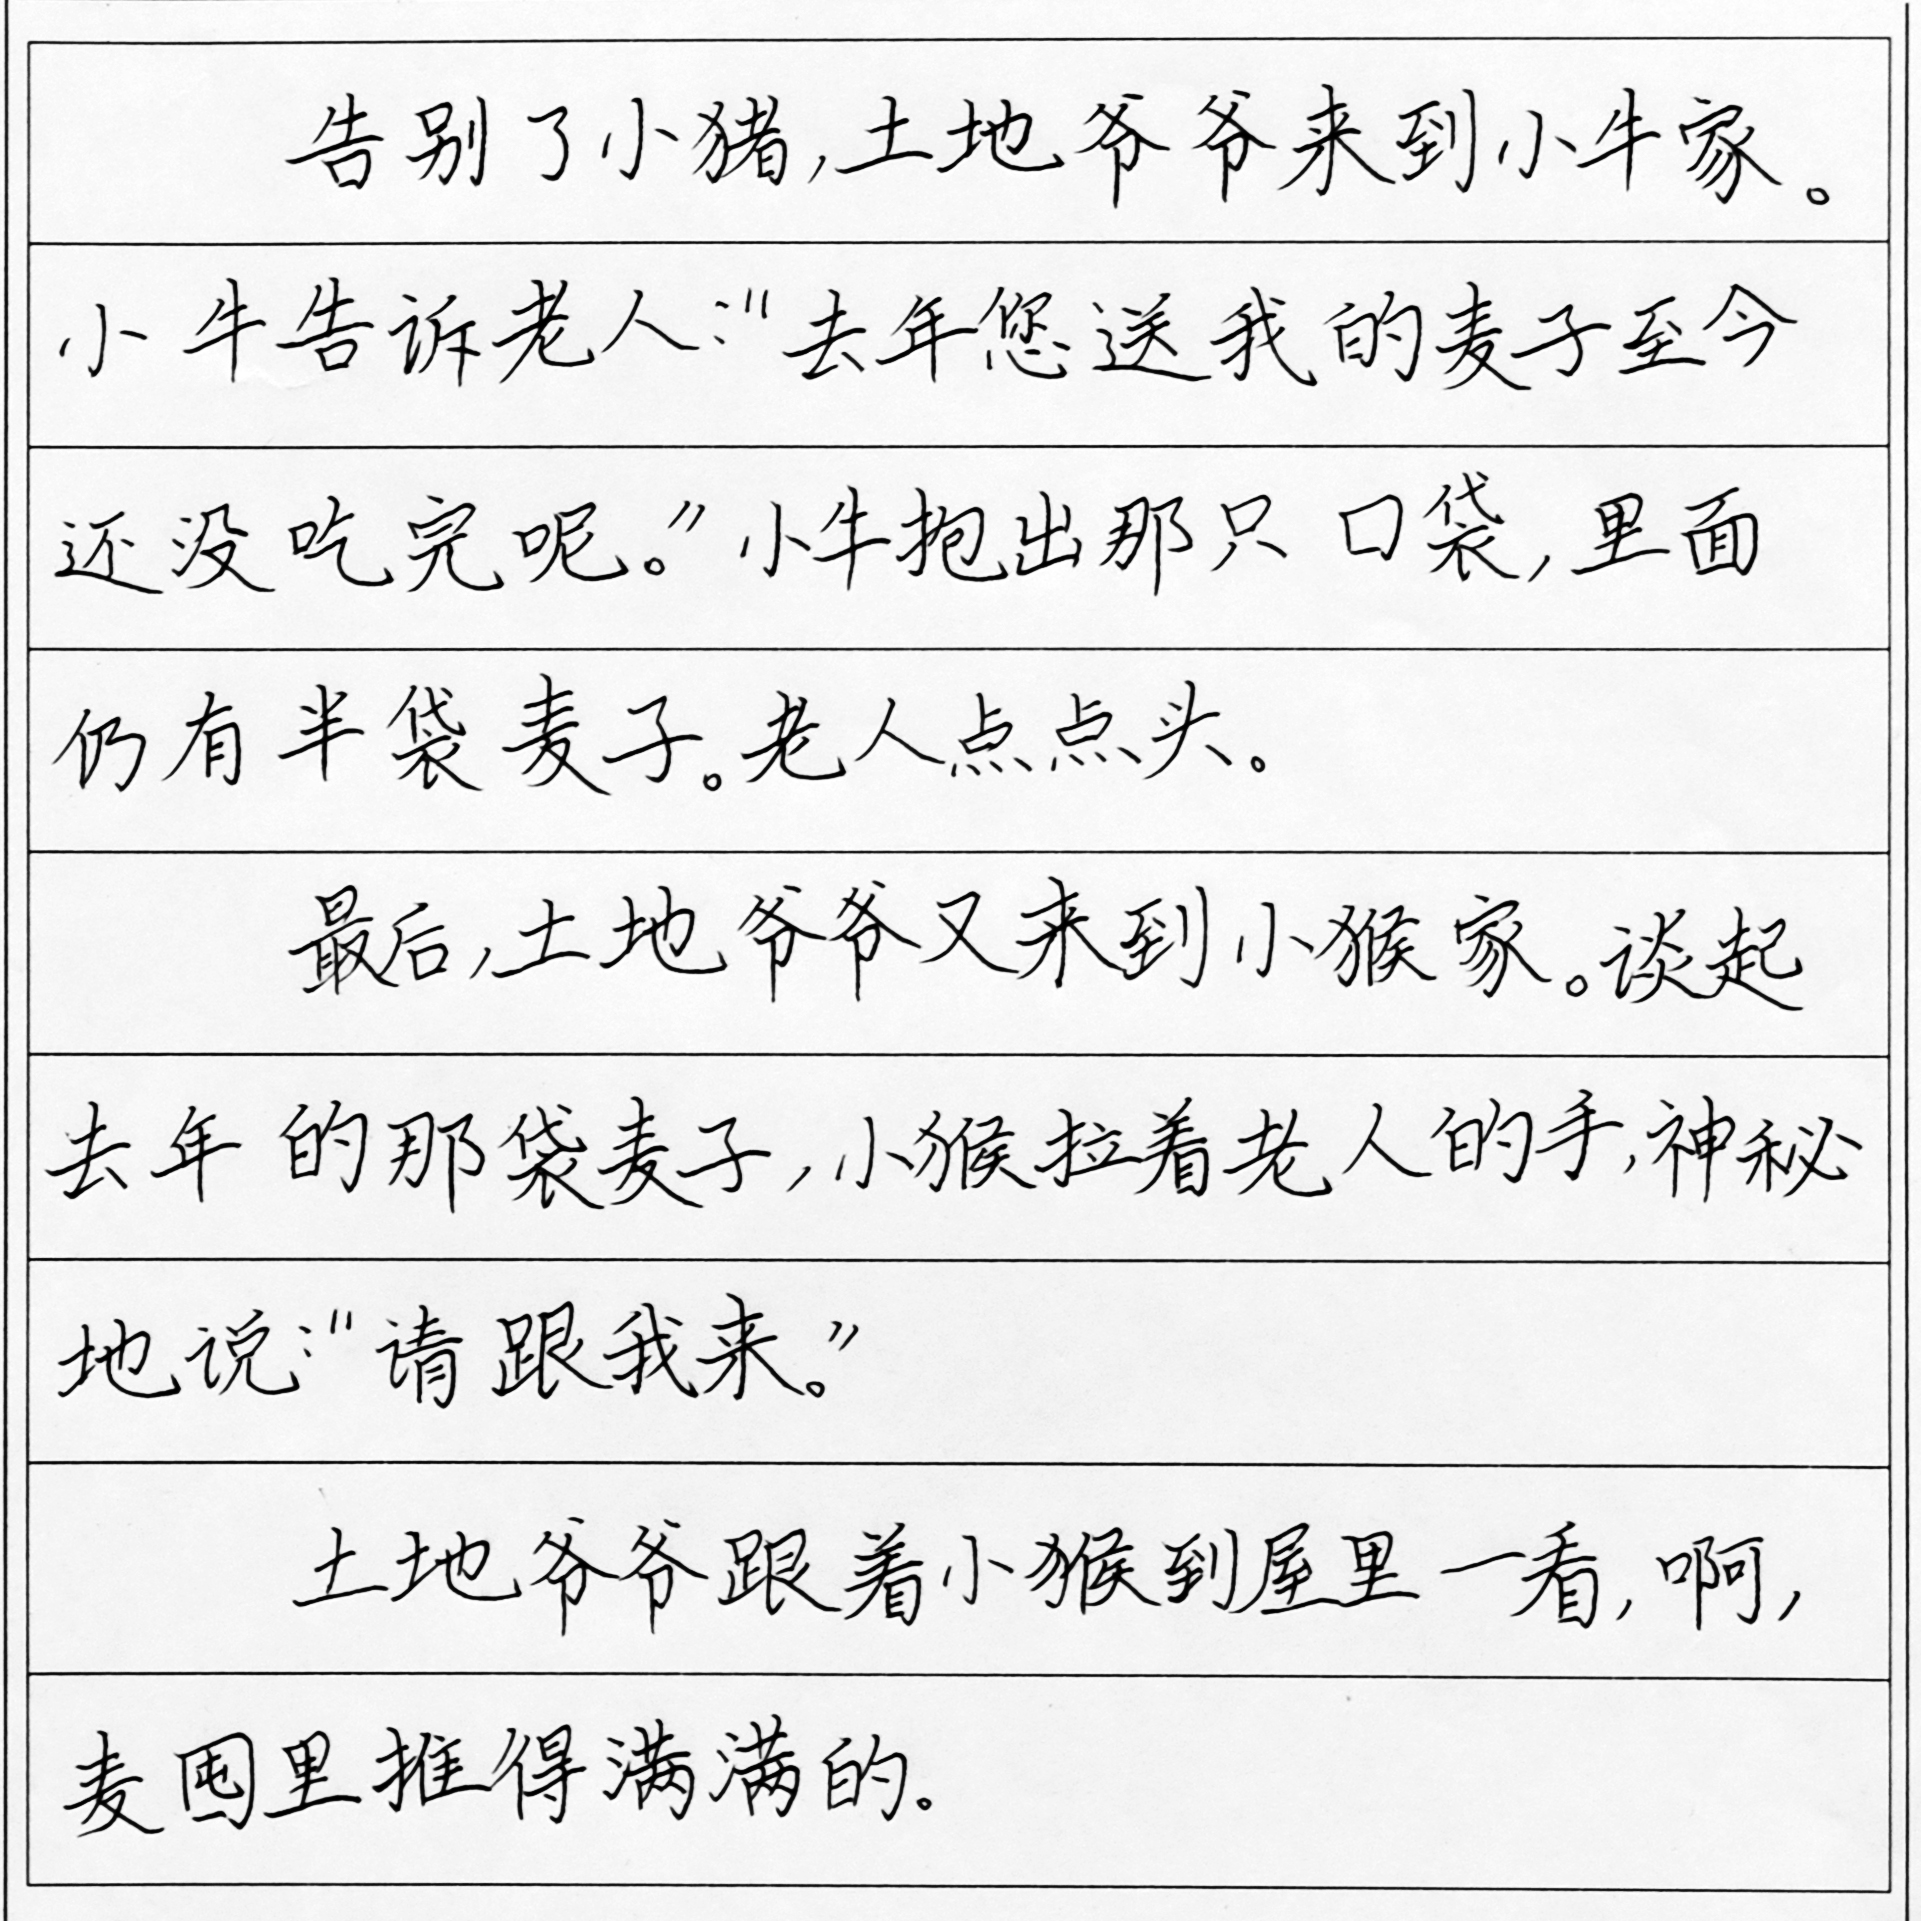 告别了小猪,土地爷爷来到小牛家。
小牛告诉老人:“去年您送我的麦子至今
还没吃完呢。”小牛抱出那只口袋,里面
仍有半袋麦子。老人点点头。
最后,土地爷爷又来到小猴家。谈起
去年的那袋麦子,小猴拉着老人的手,神秘
地说:“请跟我来。”
土地爷爷跟着小猴到屋里一看,啊,
麦囤里推得满满的。